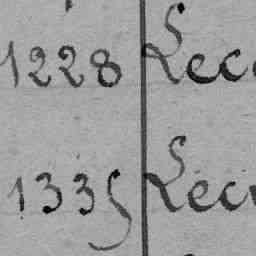 1228 Lec
1335 Lec